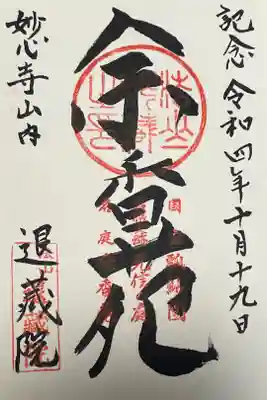 記念 令和四年十月十九日
余香苑
妙心寺山内
退藏院